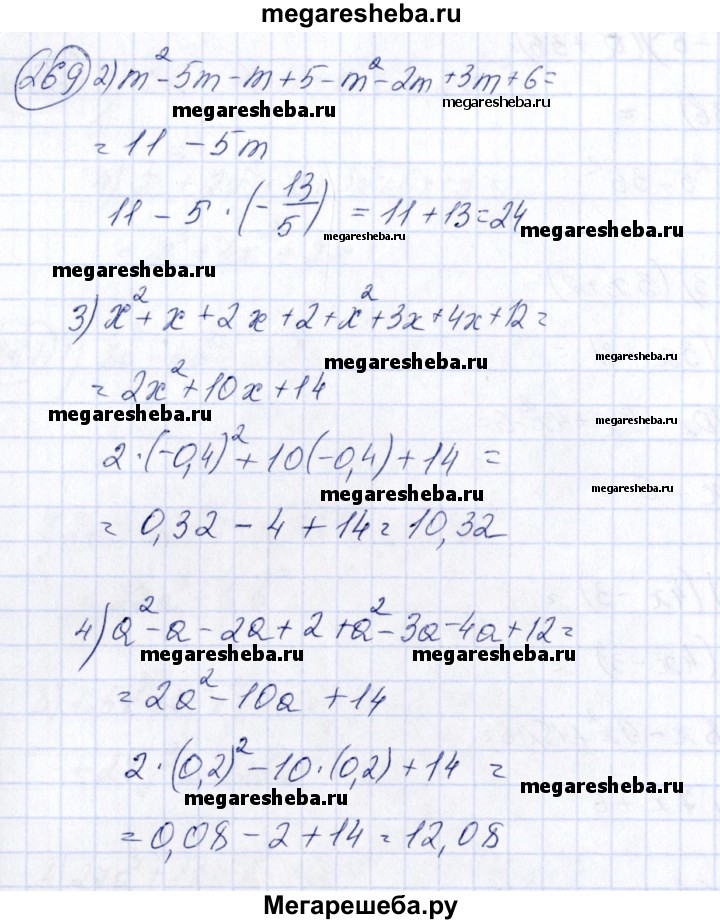 megaresheba.ru
269 2) m² - 5m - m + 5 - m² - 2m + 3m + 6 =
megaresheba.ru megaresheba.ru
= 11 - 5m
11 - 5 · (-13/5) = 11 + 13 = 24
megaresheba.ru megaresheba.ru
megaresheba.ru
3) x² + x + 2x + 2 + x² + 3x + 4x + 12 =
megaresheba.ru megaresheba.ru
= 2x² + 10x + 14
megaresheba.ru megaresheba.ru
2 · (-0,4)² + 10(-0,4) + 14 =
megaresheba.ru megaresheba.ru
= 0,32 - 4 + 14 = 10,32
4) a² - a - 2a + 2 + a² - 3a - 4a + 12 =
megaresheba.ru megaresheba.ru
= 2a² - 10a + 14
2 · (0,2)² - 10 · (0,2) + 14 =
megaresheba.ru megaresheba.ru
= 0,08 - 2 + 14 = 12,08
Мегарешеба.ру